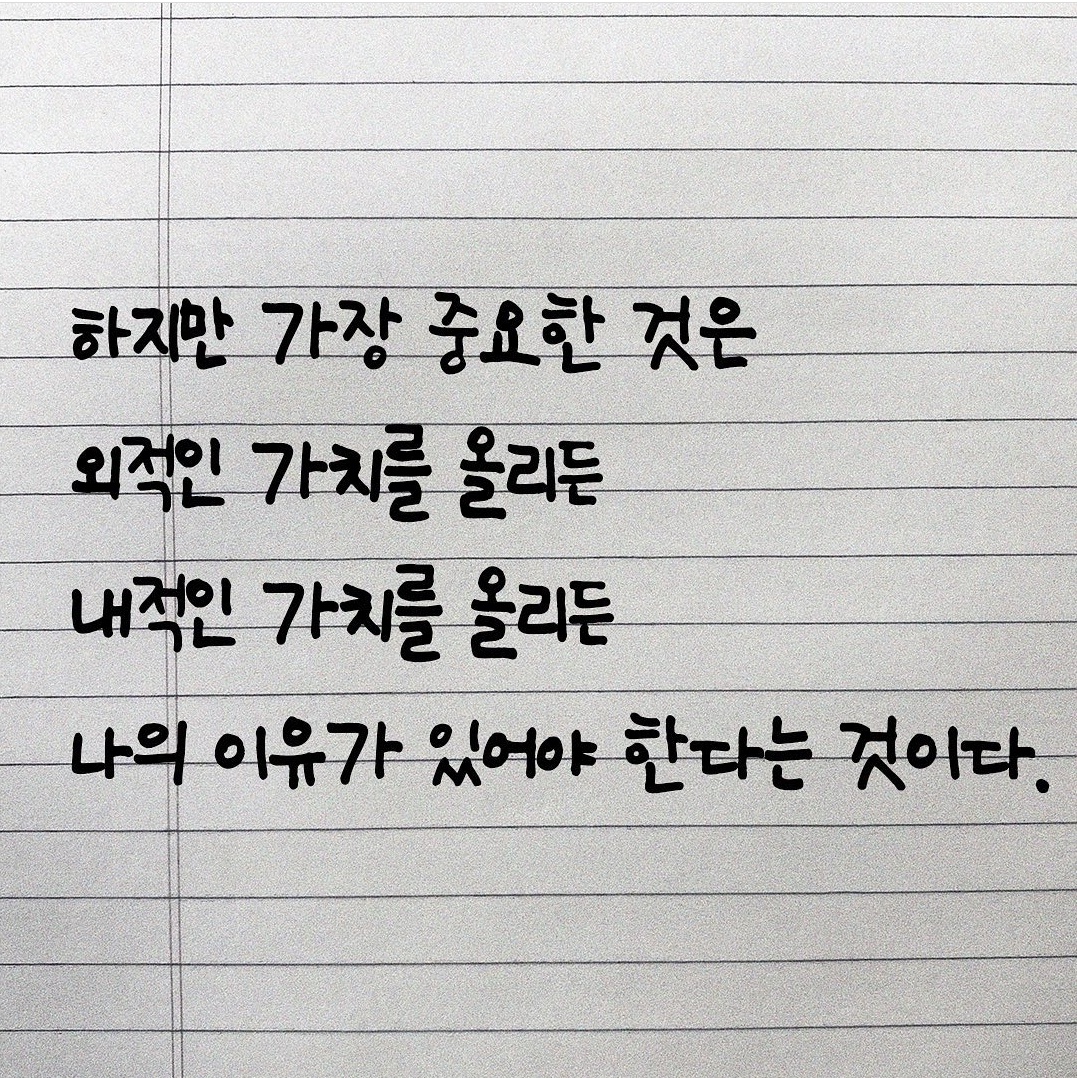 하지만 가장 중요한 것은
외적인 가치를 올리든
내적인 가치를 올리든
나의 이유가 있어야 한다는 것이다.